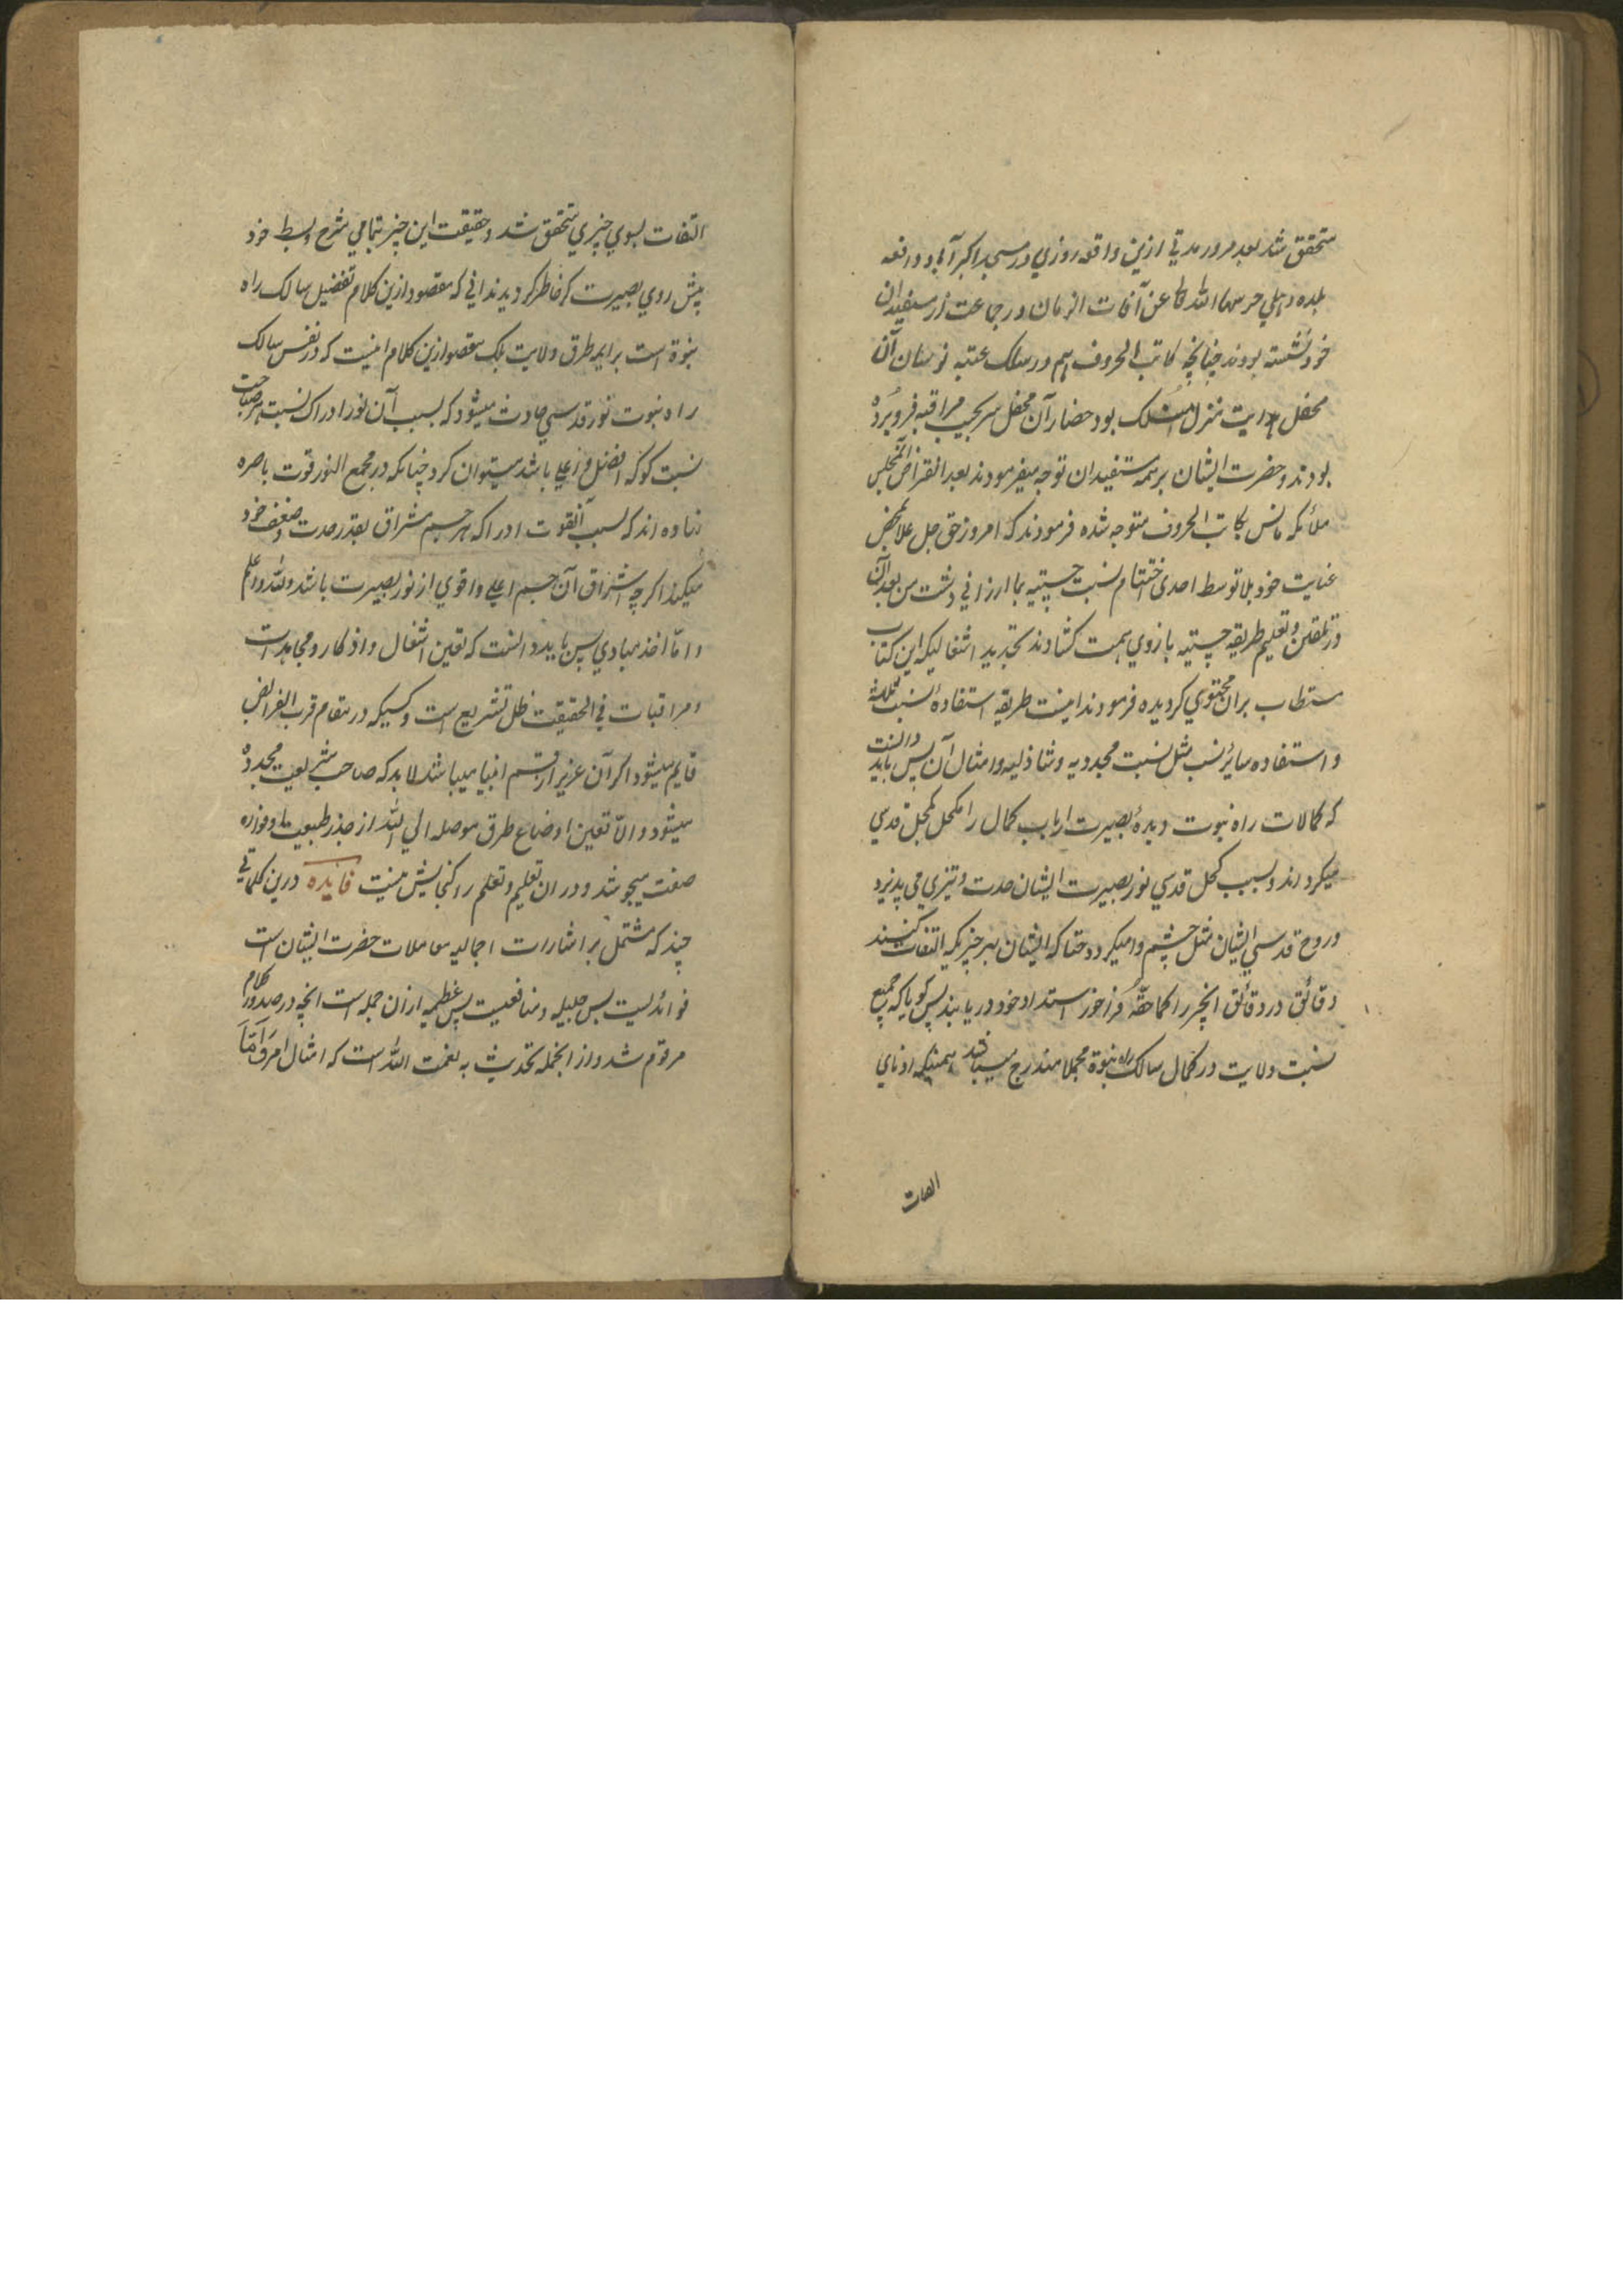 متحقق شد بعد مرور مدتی ازین واقعه روزی در مسجد اکبرآبادی واقعه
بلده دهلی حرسها الله تعالی عن آفات الزمان در جماعت از مستفیدان
خود نشسته بودند چنانچه کاتب الحروف هم در سلک عتبه بوسان آن
محفل هدایت منزل منسلک بود حضار آن محفل سر بجیب مراقبه فرو برده
بودند و حضرت ایشان بر همه مستفیدان توجه میفرمودند بعد انقراض آن مجلس
ملائکه مانس بکاتب الحروف متوجه شده فرمودند که امروز حق جل علا بمحض
عنایت خود بلا توسط احدی اختتام نسبت چشتیه بما ارزانی داشت من بعد آن
در تلقین و تعلیم طریقه چشتیه بازوی همت کشادند بتجدید اشغالیکه این کتاب
مستطاب بران محتوی کردیده فرمودند اینست طریقه استفاده نسبت ثلثه
و استفاده سایر نسب مثل نسبت مجددیه و شاذلیه و امثال آن پس باید دانست
که کمالات راه نبوت دیدهٔ بصیرت ارباب کمال را مکحل بکحل قدسی
میکرداند و بسبب کحل قدسی نور بصیرت ایشان حدت و تیزی می پذیرد
و روح قدسی ایشان مثل چشم وا میکردد حتا که ایشان بهر چیزیکه التفات کنند
دقائق در دقائق آنچیز را کما حقه فراخور استعداد خود دریابند پس کویا که جمیع
نسبت ولایت در کمال سالک راه نبوة مجملا مندرج میباشد همینکه ادنای
التفات
التفات بسوی چیزی متحقق شد و حقیقت این چیز بتمامی شرح و بسط خود
پیش روی بصیرت کرم خاطر کردید ندانی که مقصود ازین کلام تفضیل سالک راه
نبوة است بر ایمه طرق ولایت بلک مقصود ازین کلام اینست که در نفس سالک
راه نبوت نور قدسی حادث میشود که بسبب آن نور ادراک نسبت هر صاحب
نسبت کو که افضل و اعلی باشد میتوان کرد چنانکه در مجمع النور قوت باصره
نهاده اند که بسبب آنقوت ادراک هر جسم مشراق بقدر حدت و ضعف خود
میکند اکرچه اشراق آن جسم اعلی و اقوی از نور بصیرت باشد والله اعلم
و اما اخذ مبادی پس باید دانست که تعین اشغال و اذکار و مجاهدات
و مراقبات فی الحقیقت ظل تشریع است و کسیکه در مقام قرب الفرائض
قایم میشود اکر آن عزیز از قسم انبیا میباشد لابد که صاحب شریعت مجدده
میشود و الا تعین اوضاع طرق موصله الی الله از جذر طبیعت او فواره
صفت میجوشد و در ان تعلیم و تعلم را کنجایش نیست فایده درین کلماتی
چند که مشتمل بر اشارات اجمالیه معاملات حضرت ایشان است
فوائدیست بس جلیله و منافعیست بس عظیمه ازان جمله است انچه در صدور کلام
مرقوم شد و از انجمله تحدیث به نعمت الله است که امثال امر وَاَمَّا